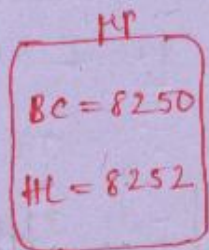 μP
BC = 8250
HL = 8252